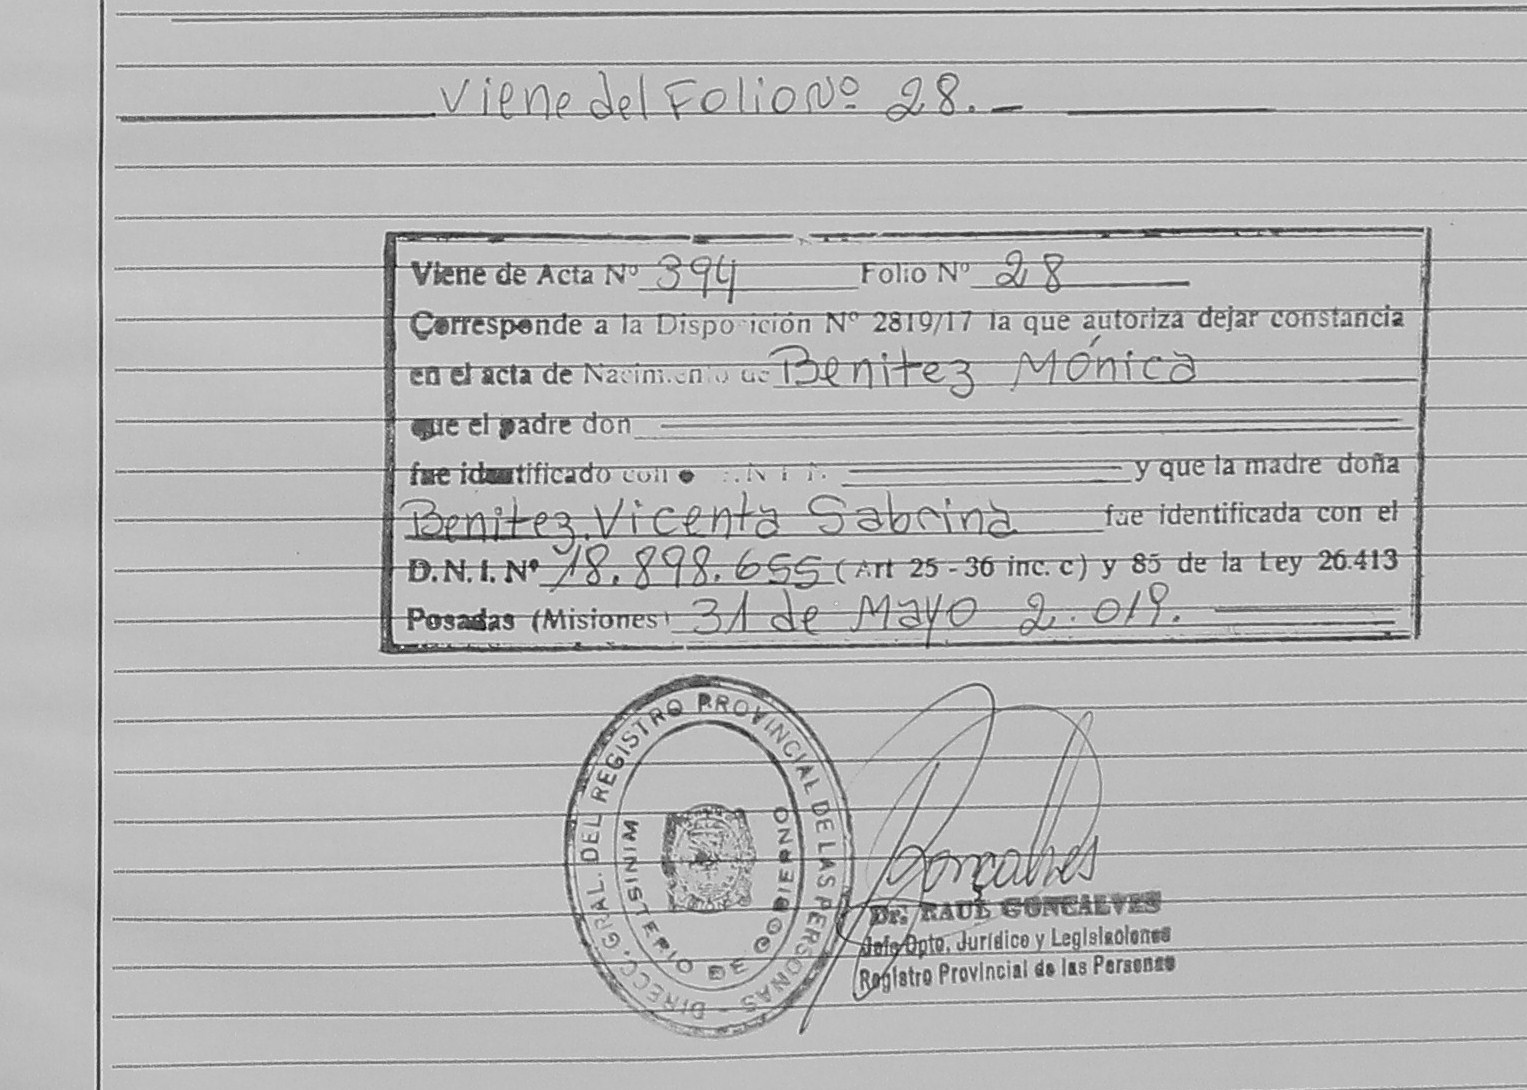 Viene del Folio Nº 28.-
Viene de Acta Nº 394 Folio Nº 28
Corresponde a la Disposición Nº 2819/17 la que autoriza dejar constancia
en el acta de Nacimiento de Benitez Mónica
que el padre don
fue identificado con D.N.I. y que la madre doña
Benitez, Vicenta Sabrina fue identificada con el
D.N.I. Nº 18.898.655 (Art 25-36 inc. c) y 85 de la Ley 26.413
Posadas (Misiones) 31 de Mayo 2.019.
DIRECC. GRAL. DEL REGISTRO PROVINCIAL DE LAS PERSONAS -
MINISTERIO DE GOBIERNO
Goncalves
Dr. RAUL GONCALVES
Jefe Dpto. Jurídico y Legislaciones
Registro Provincial de las Personas